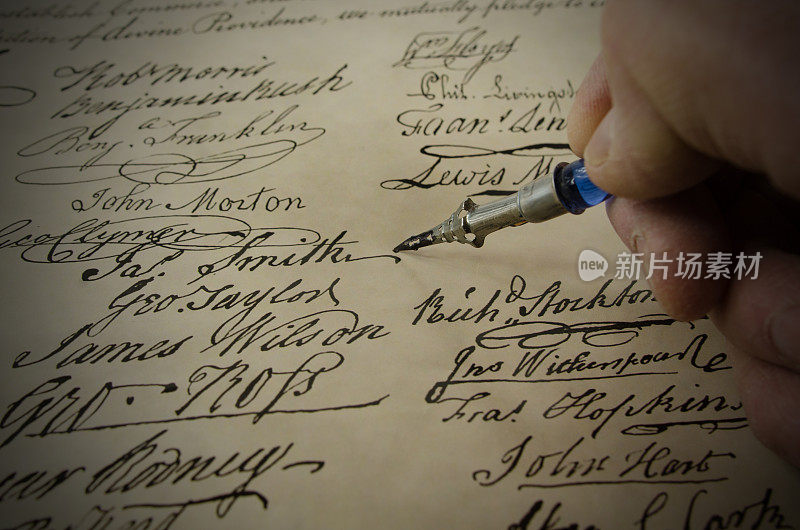 establish Commerce, and
of divine Providence, we mutually pledge to
Robt Morris
Benjamin Rush
Benja Franklin
John Morton
Geo Clymer
Jas. Smith
Geo. Taylor
James Wilson
Geo. Ross
Rodney
Wm Floyd
Phil. Livings
Fran.s Lew
Lewis M
Richd Stockton
Jno Witherspoon
Fras. Hopkins
John Hart
Clark
new 新片场素材